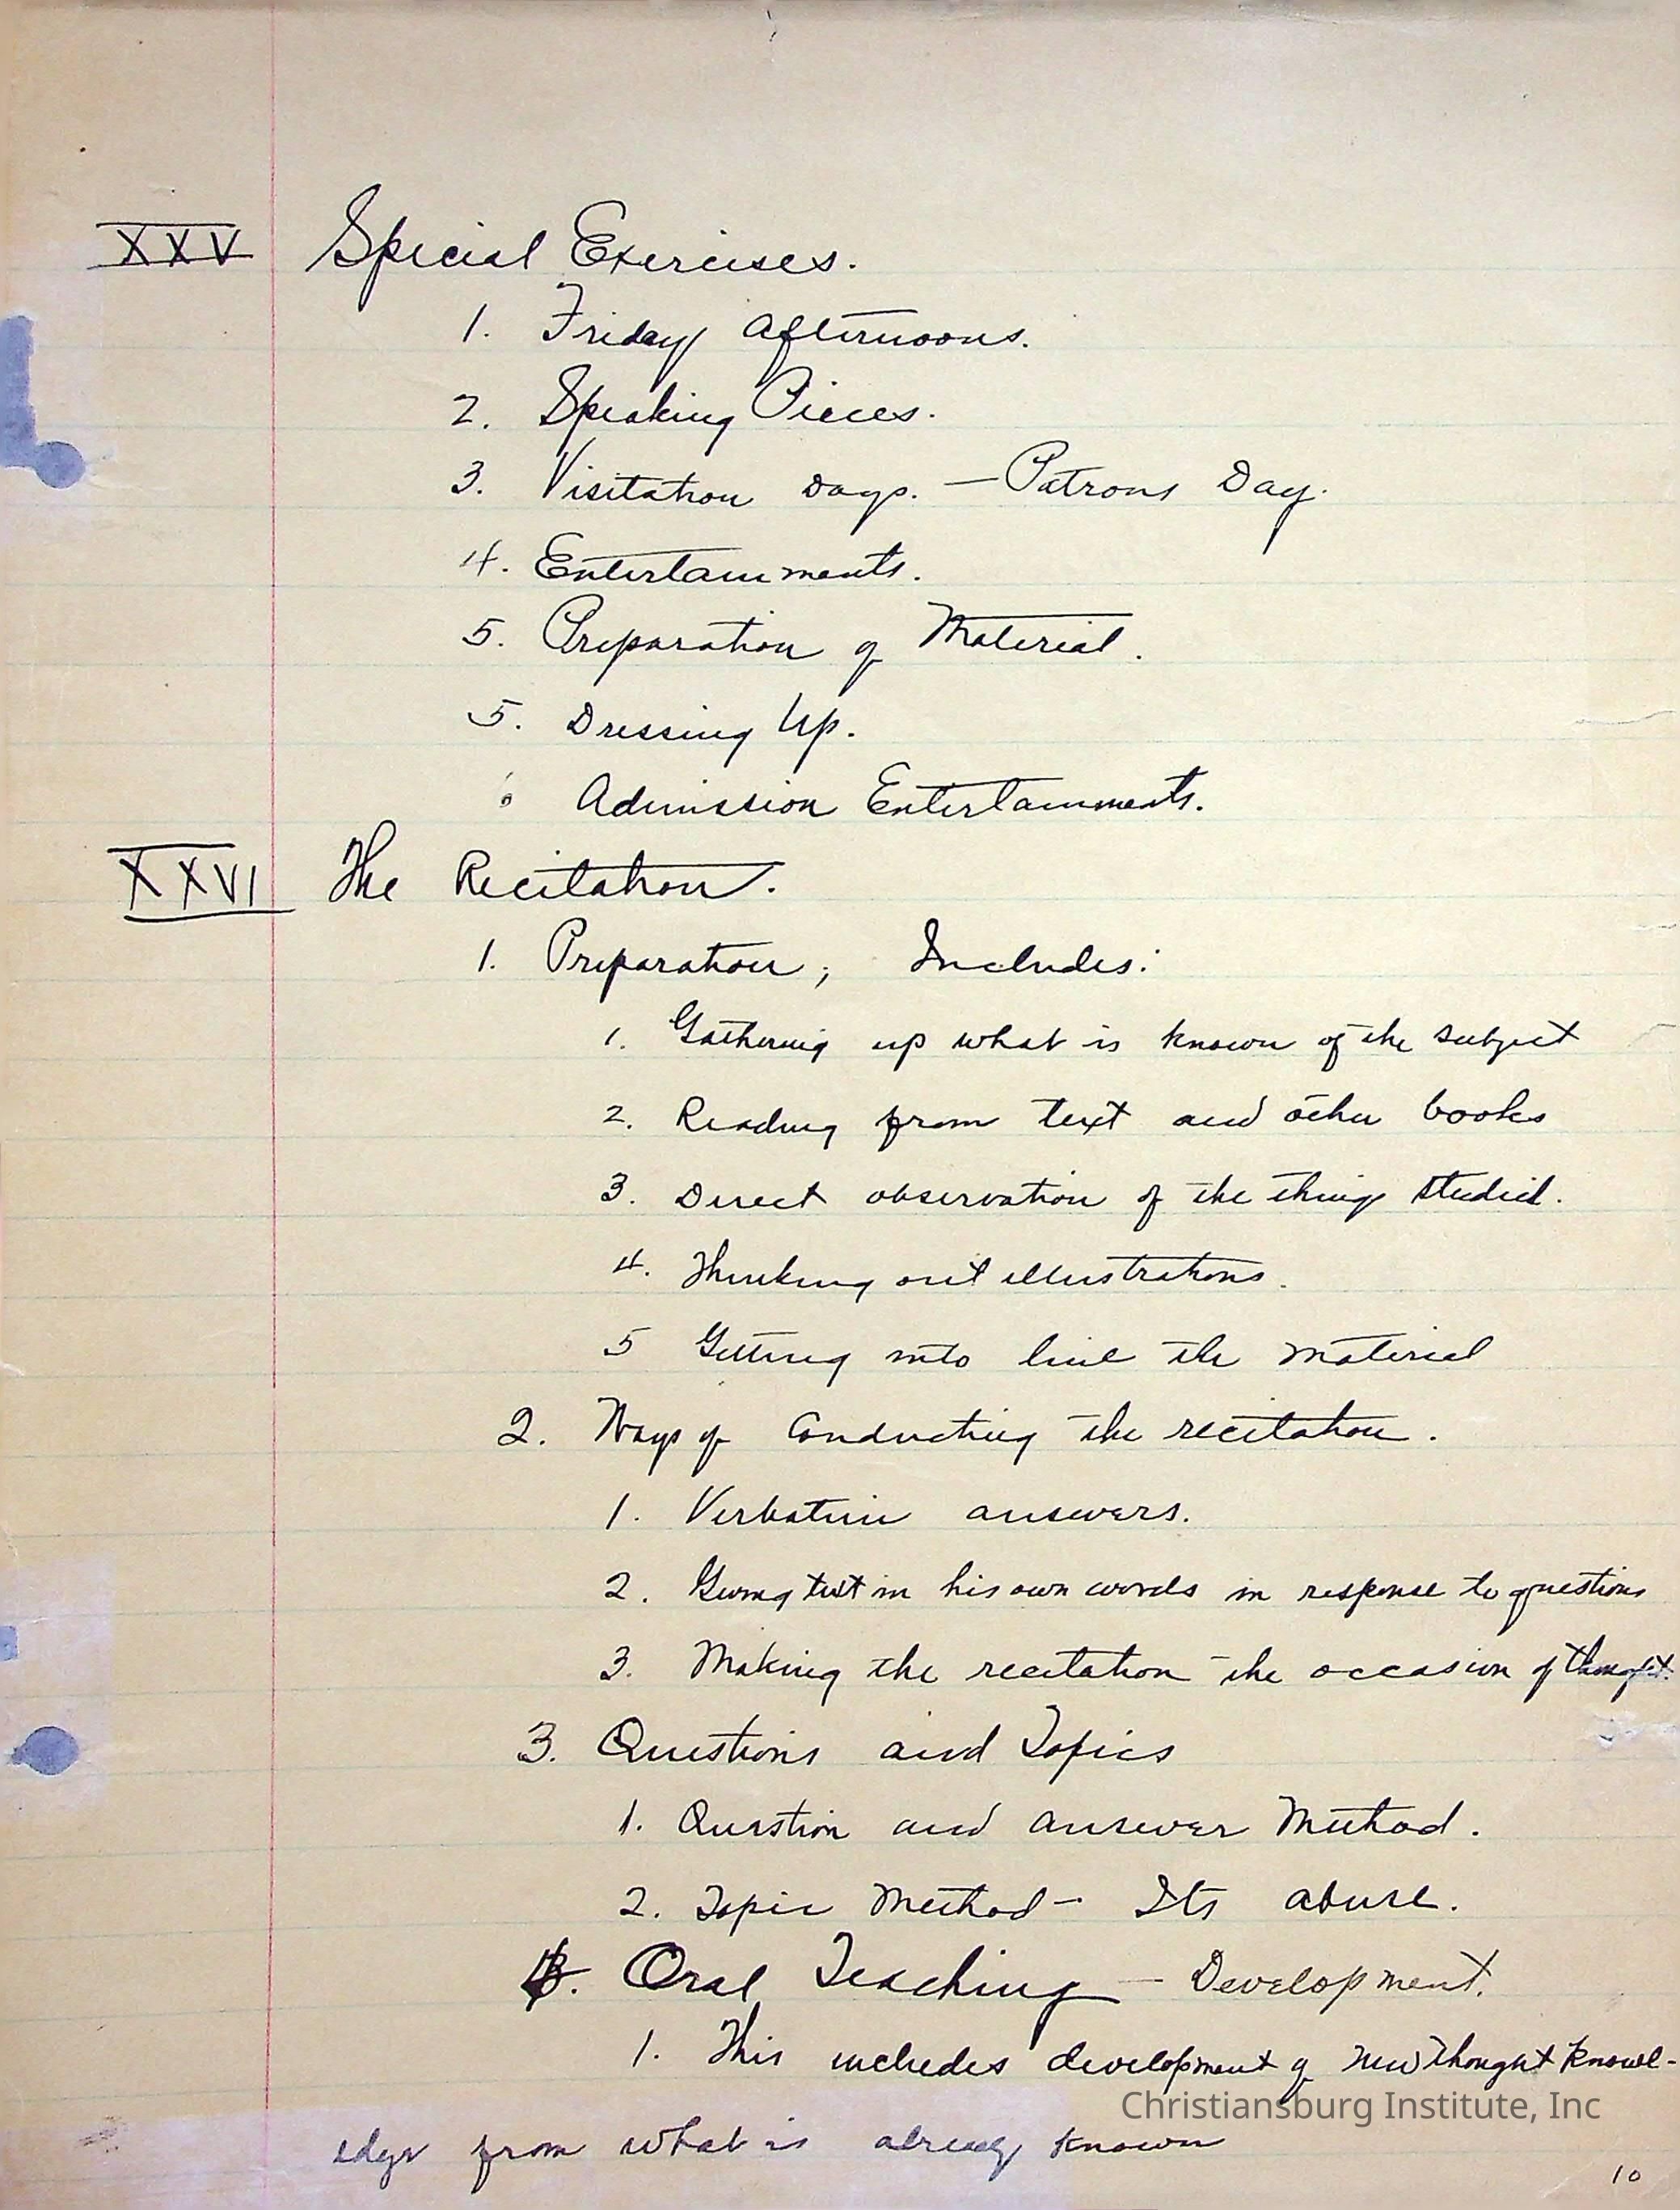 XXV Special Exercises.
1. Friday Afternoons.
2. Speaking Pieces.
3. Visitation Days. — Patrons Day.
4. Entertainments.
5. Preparation of Material.
5. Dressing Up.
Admission Entertainments.
XXVI The Recitation.
1. Preparation; Includes:
1. Gathering up what is known of the subject
2. Reading from text and other books
3. Direct observation of the things studied.
4. Thinking out illustrations.
5 Getting into line the material
2. Ways of Conducting the recitation.
1. Verbatim answers.
2. Giving text in his own words in response to questions
3. Making the recitation the occasion of thought.
3. Questions and Topics
1. Question and answer Method.
2. Topic Method - Its abuse.
Oral Teaching — Development.
1. This includes development of new thought knowl-
edge from what is already known
Christiansburg Institute, Inc
10